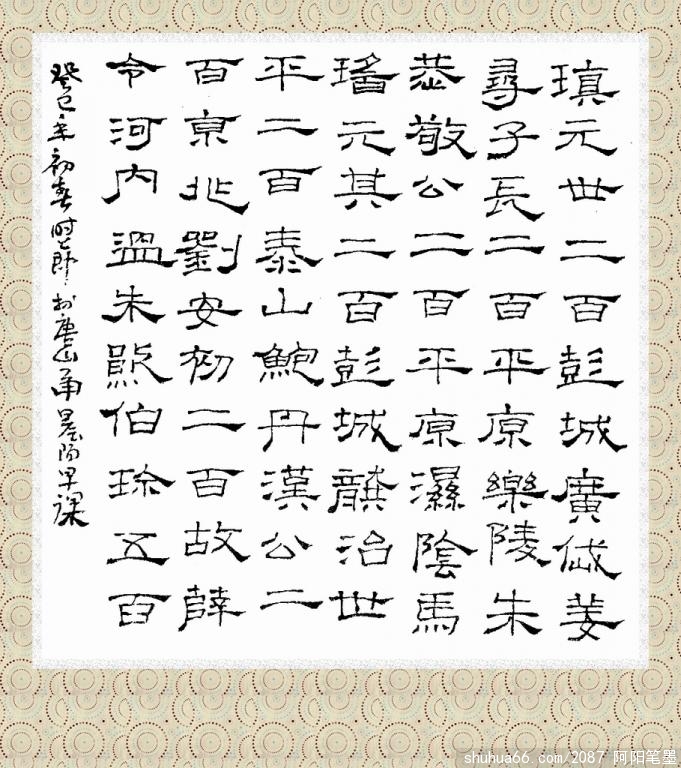 瑱元世二百彭城廣戚姜
尋子長二百平原樂陵朱
恭敬公二百平原濕陰馬
瑤元其二百彭城龔治世
平二百泰山鮑丹漢公二
百京兆劉安初二百故薛
令河内溫朱熊伯珍五百
癸巳年初春时 於唐山 早课
shuhua66.com/2087 阿阳笔墨